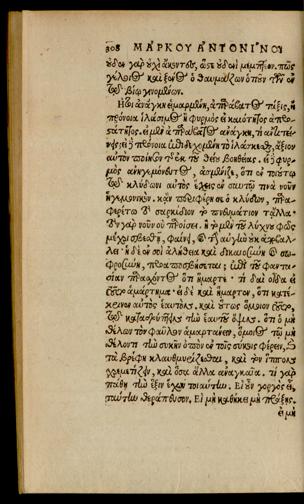 208 ΜΑΡΚΟΥ ΑΝΤΟΝΙΝΟΥ
οὐδὲν γὰρ οὐχὶ ἄκοντες, ὥστε οὐδενὶ μεμπτέον. πῶς
γελοῖος καὶ ξένος ὁ θαυμάζων ὁτιοῦν τῶν ἐν
τῷ βίῳ γινομένων.
Ἤτοι ἀνάγκη εἱμαρμένη, ἀπαράβατος τάξις, ἢ
πρόνοια ἱλάσιμος ἢ φυρμὸς εἰκαιότητος ἀπρο-
στάτητος. εἰ μὲν ἀπαράβατος ἀνάγκη, τί ἀντιτεί-
νεις; εἰ δὲ πρόνοια ἐπιδεχομένη τὸ ἱλάσκεσθαι, ἄξιον
αὑτὸν ποίησον τῆς ἐκ τοῦ θείου βοηθείας. εἰ δὲ φυρ-
μὸς ἀνηγεμόνευτος, ἀσμένιζε, ὅτι ἐν τοιούτῳ
τῷ κλύδωνι αὐτὸς ἔχεις ἐν σαυτῷ τινὰ νοῦν
ἡγεμονικόν. κἂν παραφέρῃ σε ὁ κλύδων, παρα-
φερέτω τὸ σαρκίδιον τὸ πνευμάτιον τἄλλα.
τὸν γὰρ νοῦν οὐ παροίσει. ἢ τὸ μὲν τοῦ λύχνου φῶς
μέχρι σβεσθῇ, φαίνει, καὶ τὴν αὐγὴν οὐκ ἀποβάλ-
λει· ἡ δὲ ἐν σοὶ ἀλήθεια καὶ δικαιοσύνη καὶ σω-
φροσύνη, προαποσβήσεται; ἐπὶ τοῦ φαντα-
σίαν παρασχόντος ὅτι ἥμαρτε· τί δαὶ οἶδα εἰ
τοῦτο ἁμάρτημα· εἰ δὲ καὶ ἥμαρτεν, ὅτι κατέ-
κρινεν αὐτὸς ἑαυτόν. καὶ οὕτως ὅμοιον τοῦτο,
τῷ τὴν ἑαυτοῦ ὄψιν. ὅτι ὁ μὴ
θέλων τὸν φαῦλον ἁμαρτάνειν, ὅμοιος τῷ μὴ
θέλοντι τὴν συκῆν ὀπὸν ἐν τοῖς σύκοις φέρειν, καὶ
τὰ βρέφη κλαυθμυρίζεσθαι, καὶ τὸν ἵππον
χρεμετίζειν, καὶ ὅσα ἄλλα ἀναγκαῖα. τί γὰρ
πάθῃ τὴν ἕξιν ἔχων τοιαύτην. Εἰ οὖν γοργὸς εἶ,
ταύτην θεράπευσον. Εἰ μὴ καθήκει μὴ πράξῃς.
εἰ μὴ